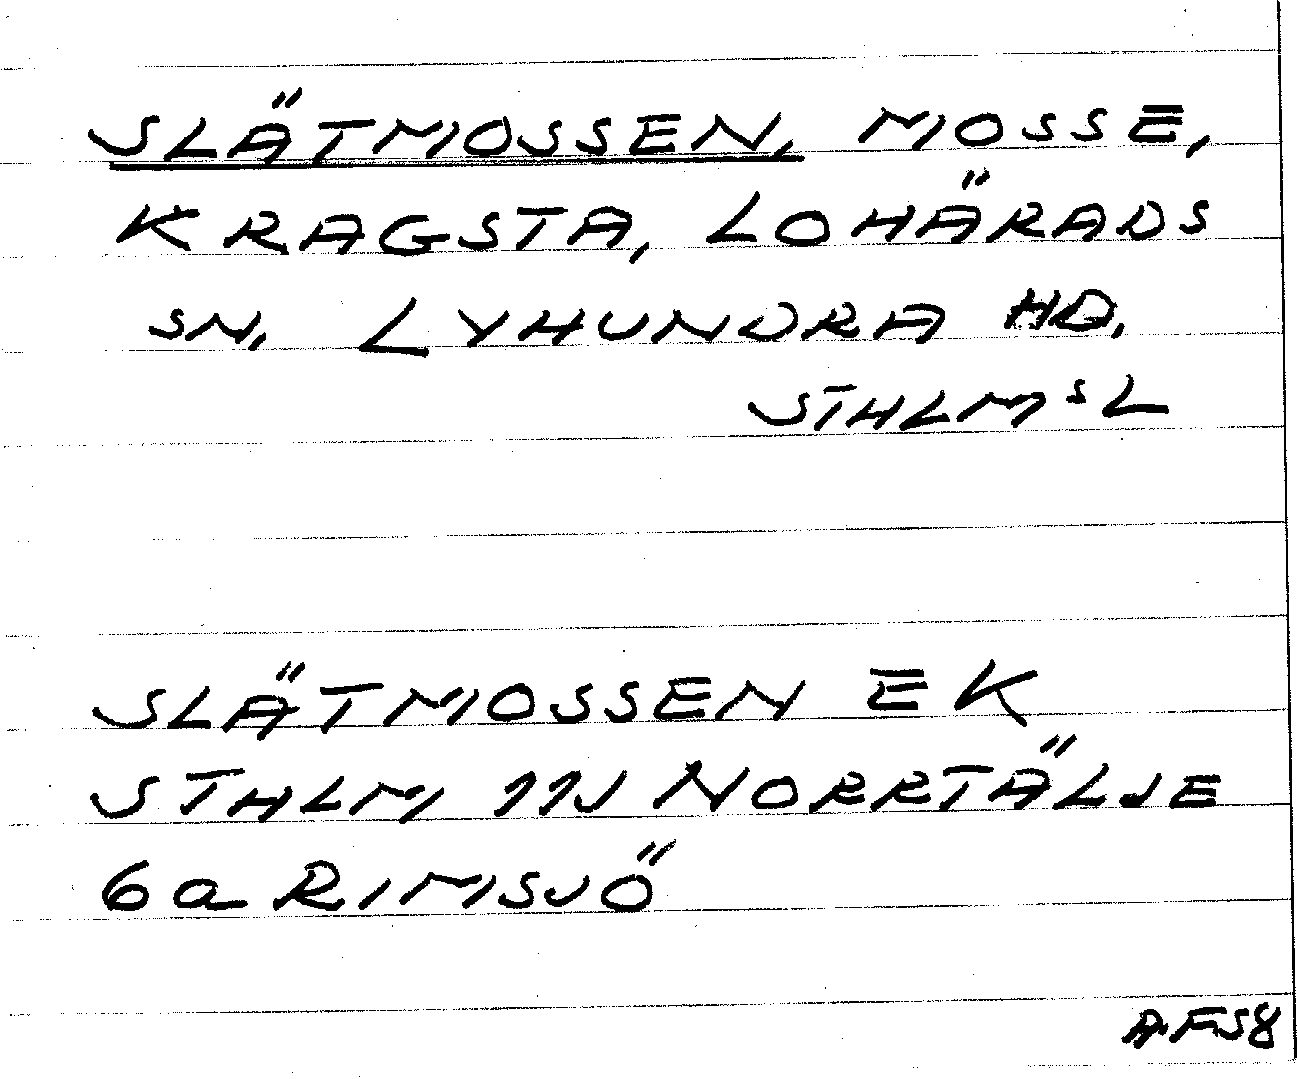 SLÄTMOSSEN, MOSSE,
KRAGSTA, LOHÄRADS
SN, LYHUNDRA HD,
STHLMS L
SLÄTMOSSEN EK
STHLM 11J NORRTÄLJE
6a RIMSJÖ
AF58